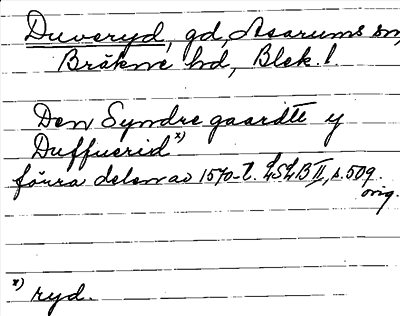 Duveryd, gd, Asarums sn,
Bräkne hd, Blek. l.
Den Syndre gaardtt y
Duffuerid x)
förra delen av 1570-t. LSLB II, s. 509.
orig.
x) ryd.